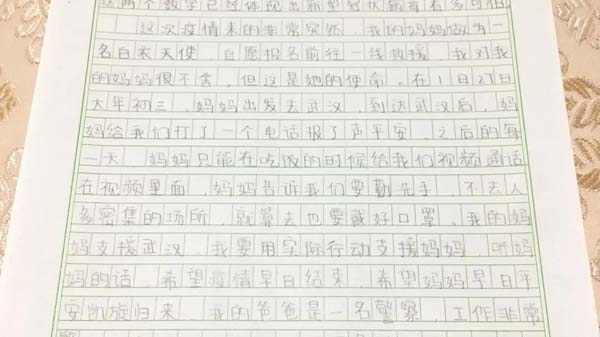 这两个数字已经体现出新型冠状病毒有多可怕
这次疫情来的非常突然，我的妈妈做为一
名白衣天使，自愿报名前往一线救援，我对我
的妈妈很不舍，但这是她的使命。在1月27日
大年初三，妈妈出发去武汉，到达武汉后，妈
妈给我们打了一个电话报了声平安，之后的每
一天 妈妈只能在吃饭的时候给我们视频通话
在视频里面，妈妈告诉我们要勤洗手，不去人
多密集的场所，就算去也要戴好口罩。我的妈
妈支援武汉，我要用实际行动支援妈妈，听妈
妈的话，希望疫情早日结束，希望妈妈早日平
安凯旋归来。我的爸爸是一名警察，工作非常